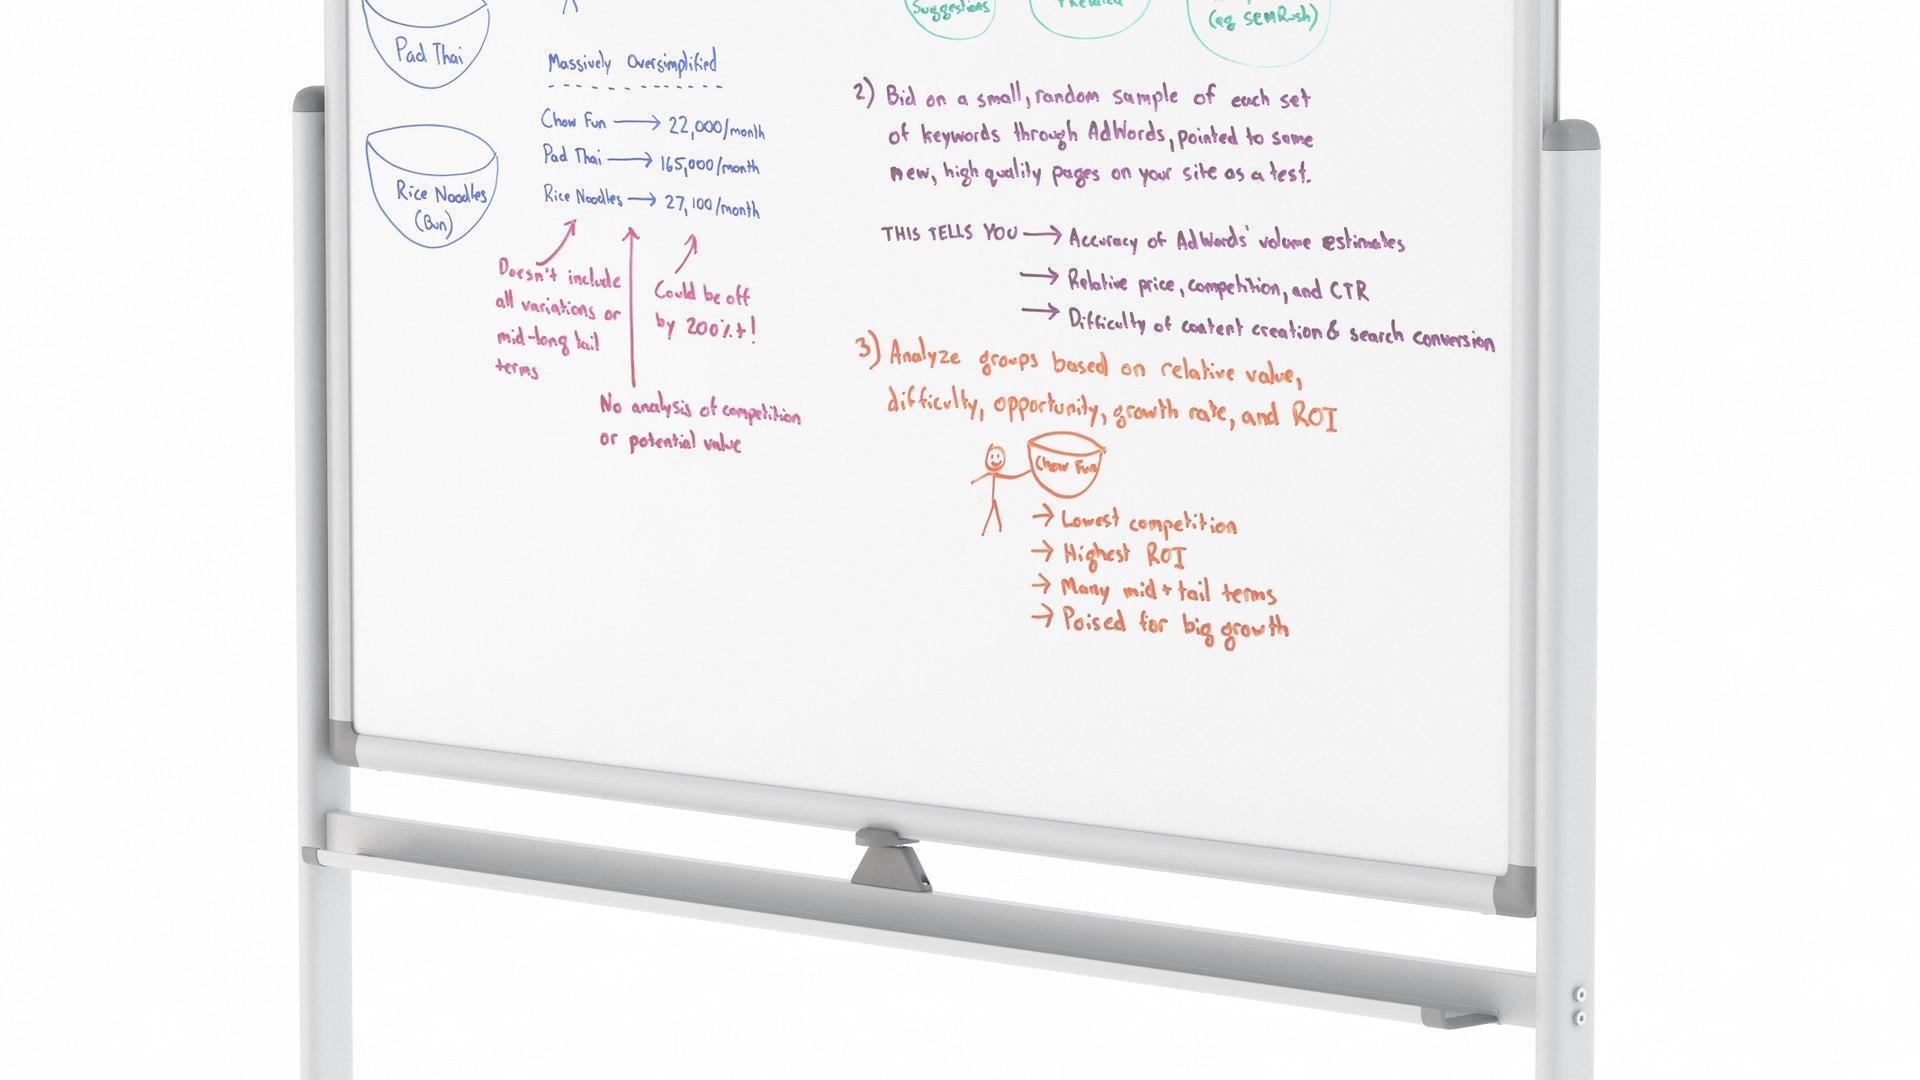 Pad Thai
Rice Noodles
(Bun)
Massively Oversimplified
Chow Fun → 22,000/month
Pad Thai → 165,000/month
Rice Noodles → 27,100/month
Doesn't include
all variations or
mid-long tail
terms
Could be off
by 200%+!
No analysis of competition
or potential value
Suggestions
(eg SEMRush)
2) Bid on a small, random sample of each set
of keywords through AdWords, pointed to some
new, high quality pages on your site as a test.
THIS TELLS YOU → Accuracy of AdWords' volume estimates
→ Relative price, competition, and CTR
→ Difficulty of content creation & search conversion
3) Analyze groups based on relative value,
difficulty, opportunity, growth rate, and ROI
Chow Fun
→ Lowest competition
→ Highest ROI
→ Many mid + tail terms
→ Poised for big growth